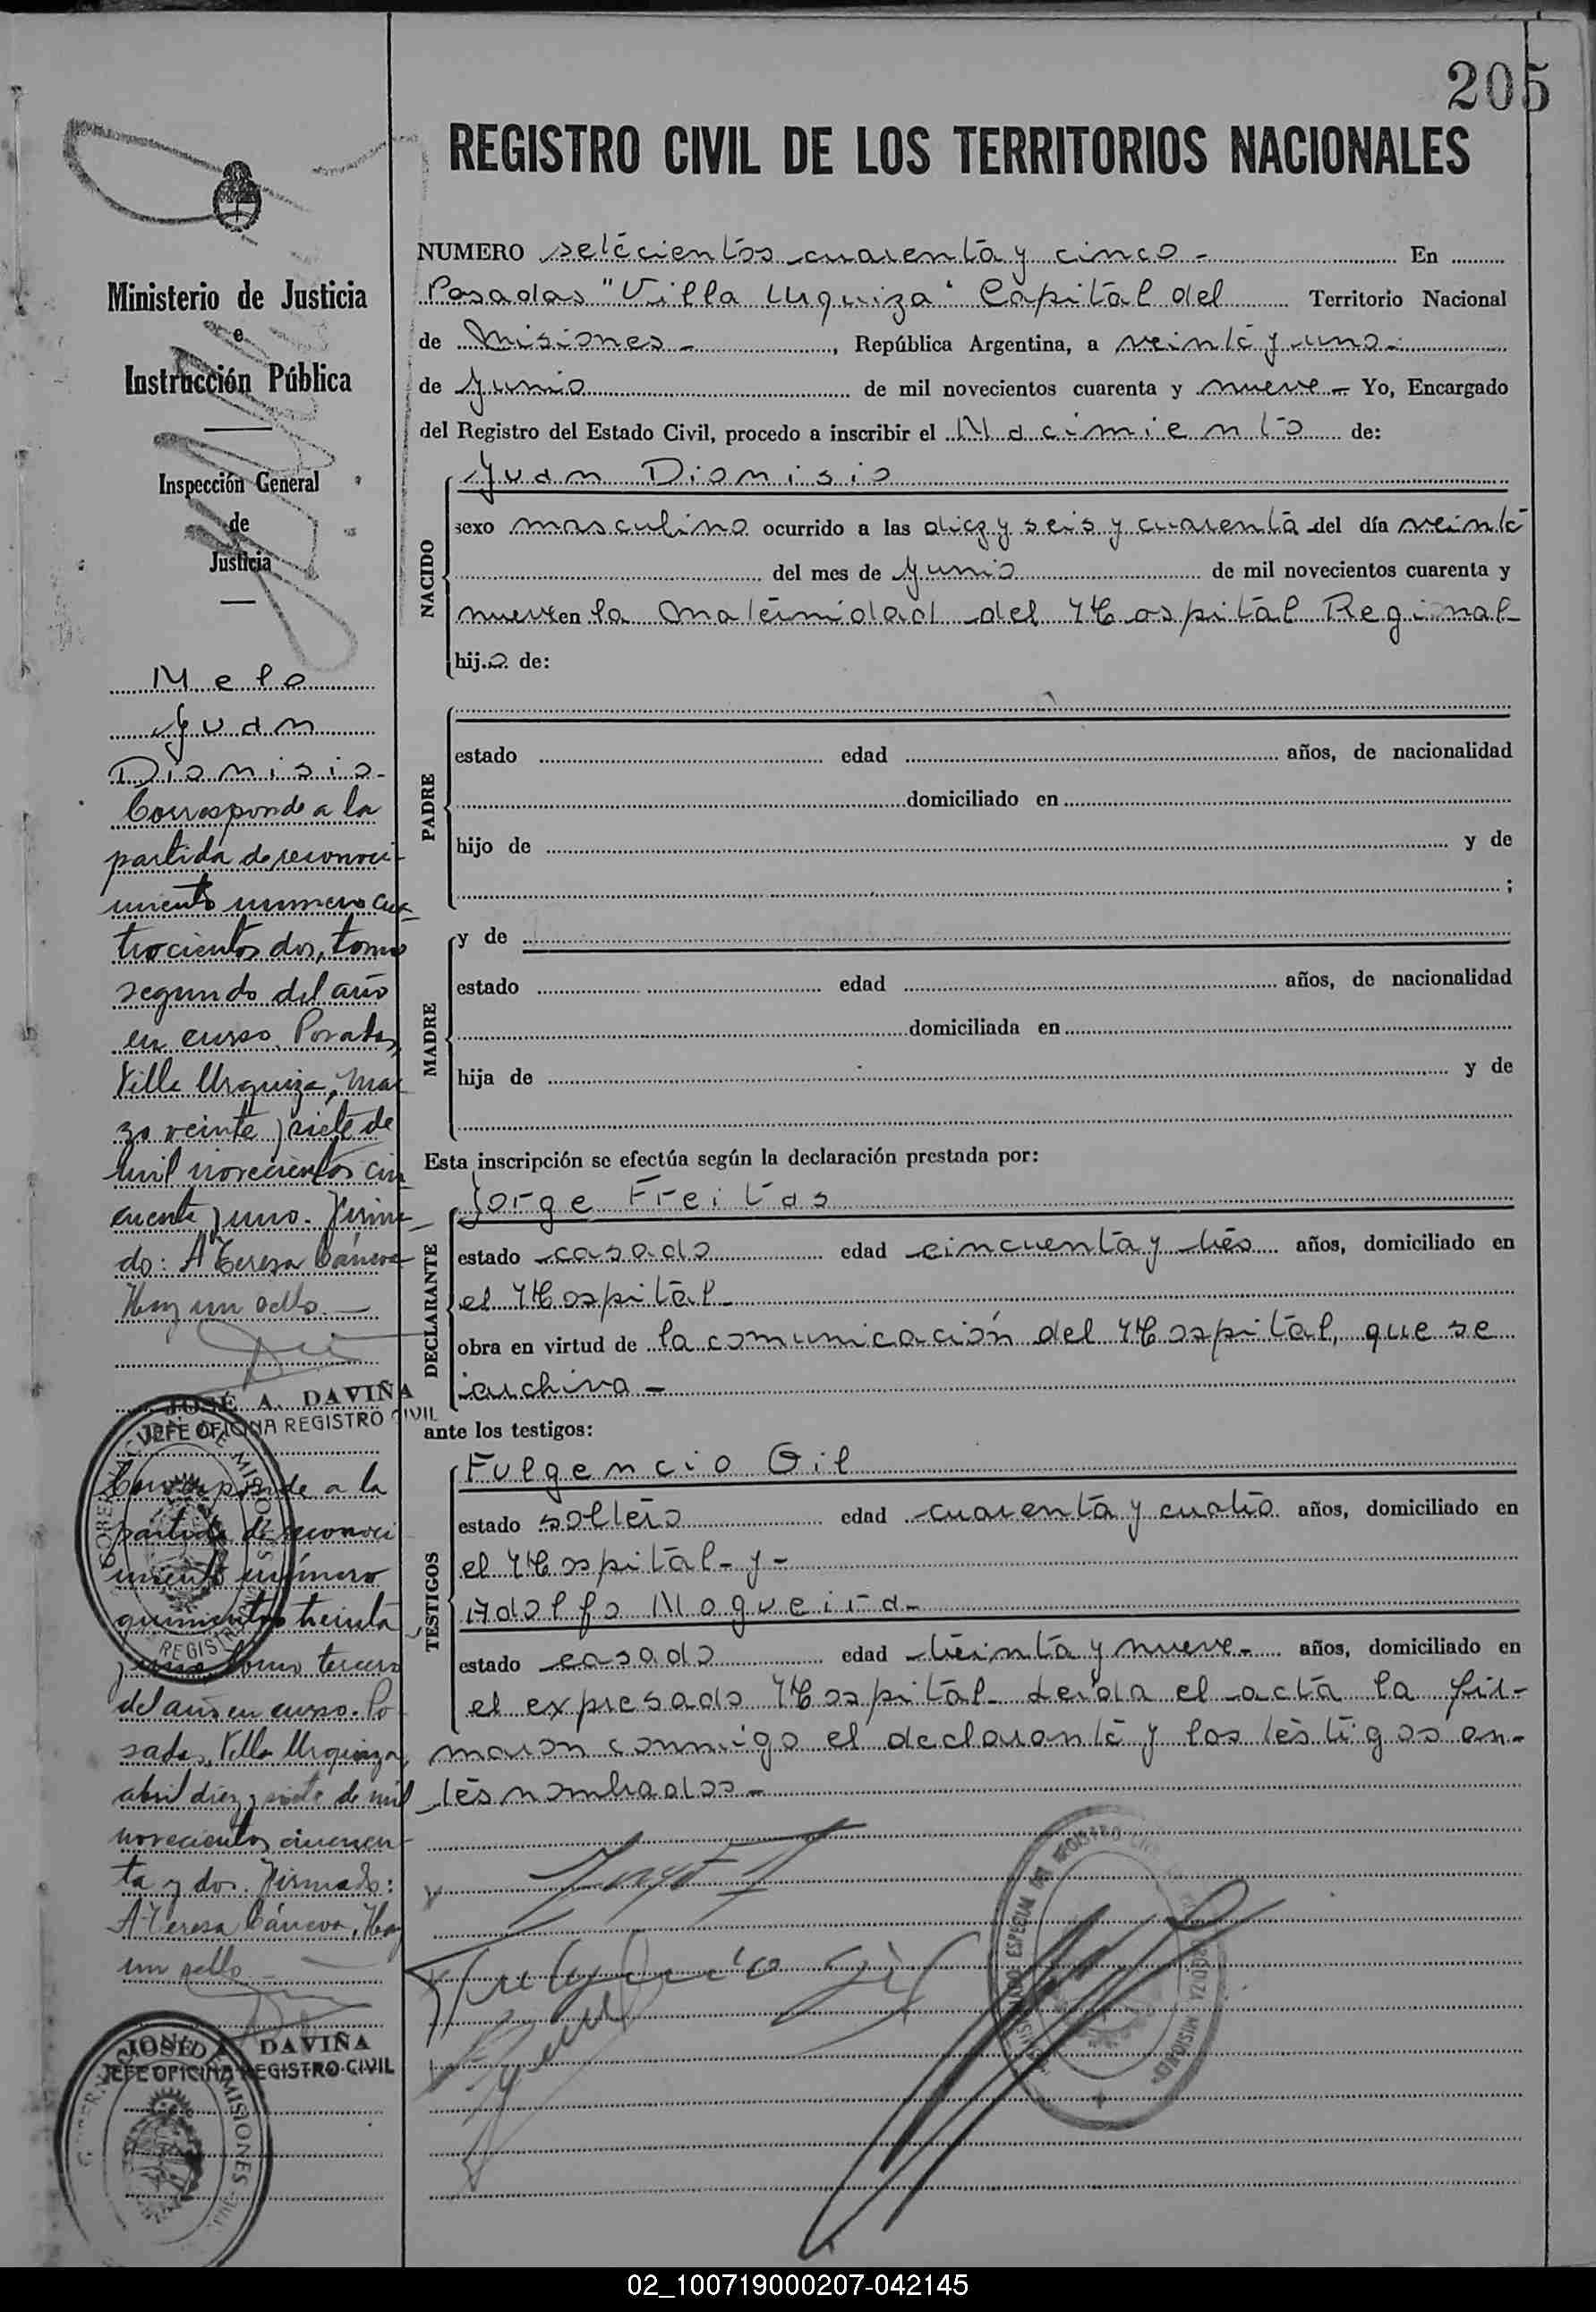 205
REGISTRO CIVIL DE LOS TERRITORIOS NACIONALES
Ministerio de Justicia
e
Instrucción Pública
Inspección General
de
Justicia
Melo
Juan
Dionisio-
Corresponde a la
partida de reconoci-
miento numero cua-
trocientos dos, tomo
segundo del año
en curso. Posadas,
Villa Urquiza, mar
zo veinte y siete de
mil novecientos cin
cuenta y uno. Firma-
do: A Teresa Cáneva
Hay un sello.-
JOSÉ A. DAVIÑA
JEFE OFICINA REGISTRO CIVIL
Corresponde a la
partida de reconoci
miento número
quinientos treinta
y uno, tomo tercero
del año en curso. Po
sadas, Villa Urquiza,
abril diez y siete de mil
novecientos cincuen-
ta y dos. Firmado:
A Teresa Cáneva. Hay
un sello-
JOSÉ A. DAVIÑA
JEFE OFICINA REGISTRO CIVIL
NUMERO setecientos cuarenta y cinco - En
Posadas "Villa Urquiza" Capital del Territorio Nacional
de Misiones-, República Argentina, a veinte y uno-
de Junio de mil novecientos cuarenta y nueve- Yo, Encargado
del Registro del Estado Civil, procedo a inscribir el Nacimiento de:
NACIDO
Juan Dionisio
sexo masculino ocurrido a las diez y seis y cuarenta del día veinte
del mes de Junio de mil novecientos cuarenta y
nueve en la Maternidad del Hospital Regional-
hijo de:
PADRE
estado edad años, de nacionalidad
domiciliado en
hijo de y de
;
MADRE
y de
estado edad años, de nacionalidad
domiciliada en
hija de y de
Esta inscripción se efectúa según la declaración prestada por:
DECLARANTE
Jorge Freitas
estado casado edad cincuenta y tres años, domiciliado en
el Hospital-
obra en virtud de la comunicación del Hospital, que se
archiva-
ante los testigos:
TESTIGOS
Fulgencio Gil
estado soltero edad cuarenta y cuatro años, domiciliado en
el Hospital- y-
Adolfo Nogueira-
estado casado edad treinta y nueve- años, domiciliado en
el expresado Hospital- Leída el acta la fir-
maron conmigo el declarante y los testigos an-
tes nombrados-
Fulgencio Gil
02_100719000207-042145